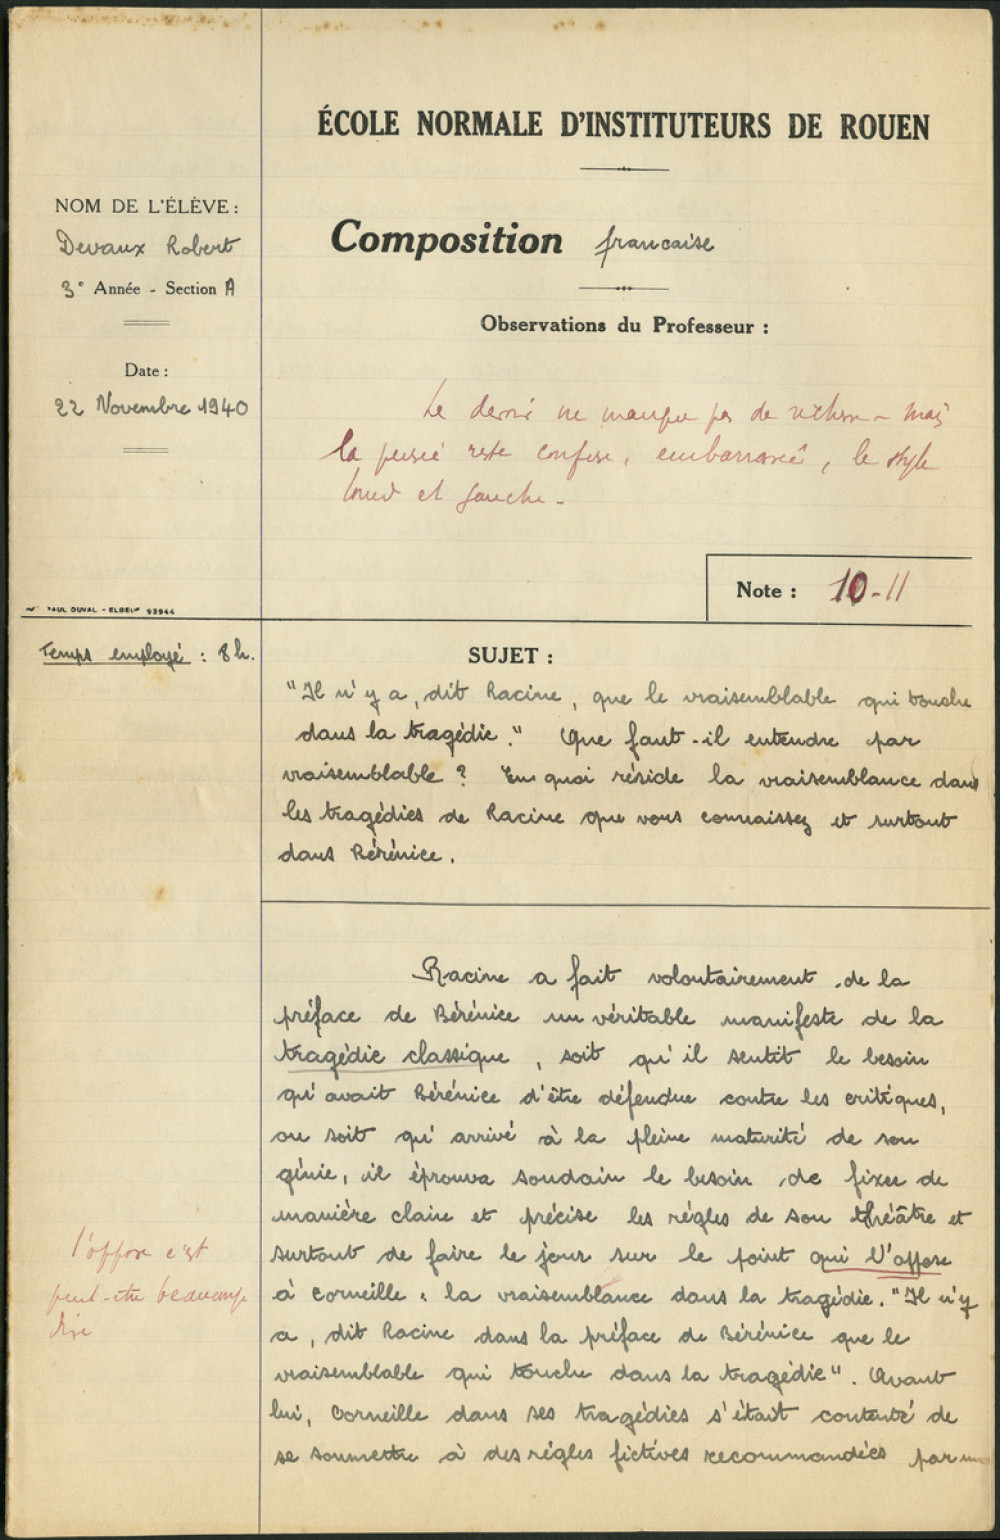 ÉCOLE NORMALE D'INSTITUTEURS DE ROUEN
NOM DE L'ÉLÈVE :
Devaux Robert
3e Année - Section A
Date :
22 Novembre 1940
Composition francaise
Observations du Professeur :
Le devoir ne manque pas de richesse - mais
la pensée reste confuse, embarrassée, le style
lourd et gauche -
Note : 10-11
PAUL DUVAL - ELBEUF 93944
Temps employé : 8 h.
SUJET :
"Il n'y a, dit Racine, que le vraisemblable qui touche
dans la tragédie." Que faut-il entendre par
vraisemblable ? En quoi réside la vraisemblance dans
les tragédies de Racine que vous connaissez et surtout
dans Bérénice.
Racine a fait volontairement de la
préface de Bérénice un véritable manifeste de la
tragédie classique, soit qu'il sentit le besoin
qu'avait Bérénice d'être défendue contre les critiques,
ou soit qu'arrivé à la pleine maturité de son
génie, il éprouva soudain le besoin de fixer de
manière claire et précise les règles de son théâtre et
surtout de faire le jour sur le point qui l'oppose
à Corneille : la vraisemblance dans la tragédie. "Il n'y
a, dit Racine dans la préface de Bérénice que le
vraisemblable qui touche dans la tragédie". Avant
lui, Corneille dans ses tragédies s'était contenté de
se soumettre à des règles fictives recommandées par un
l'oppose c'est
peut-être beaucoup
dire